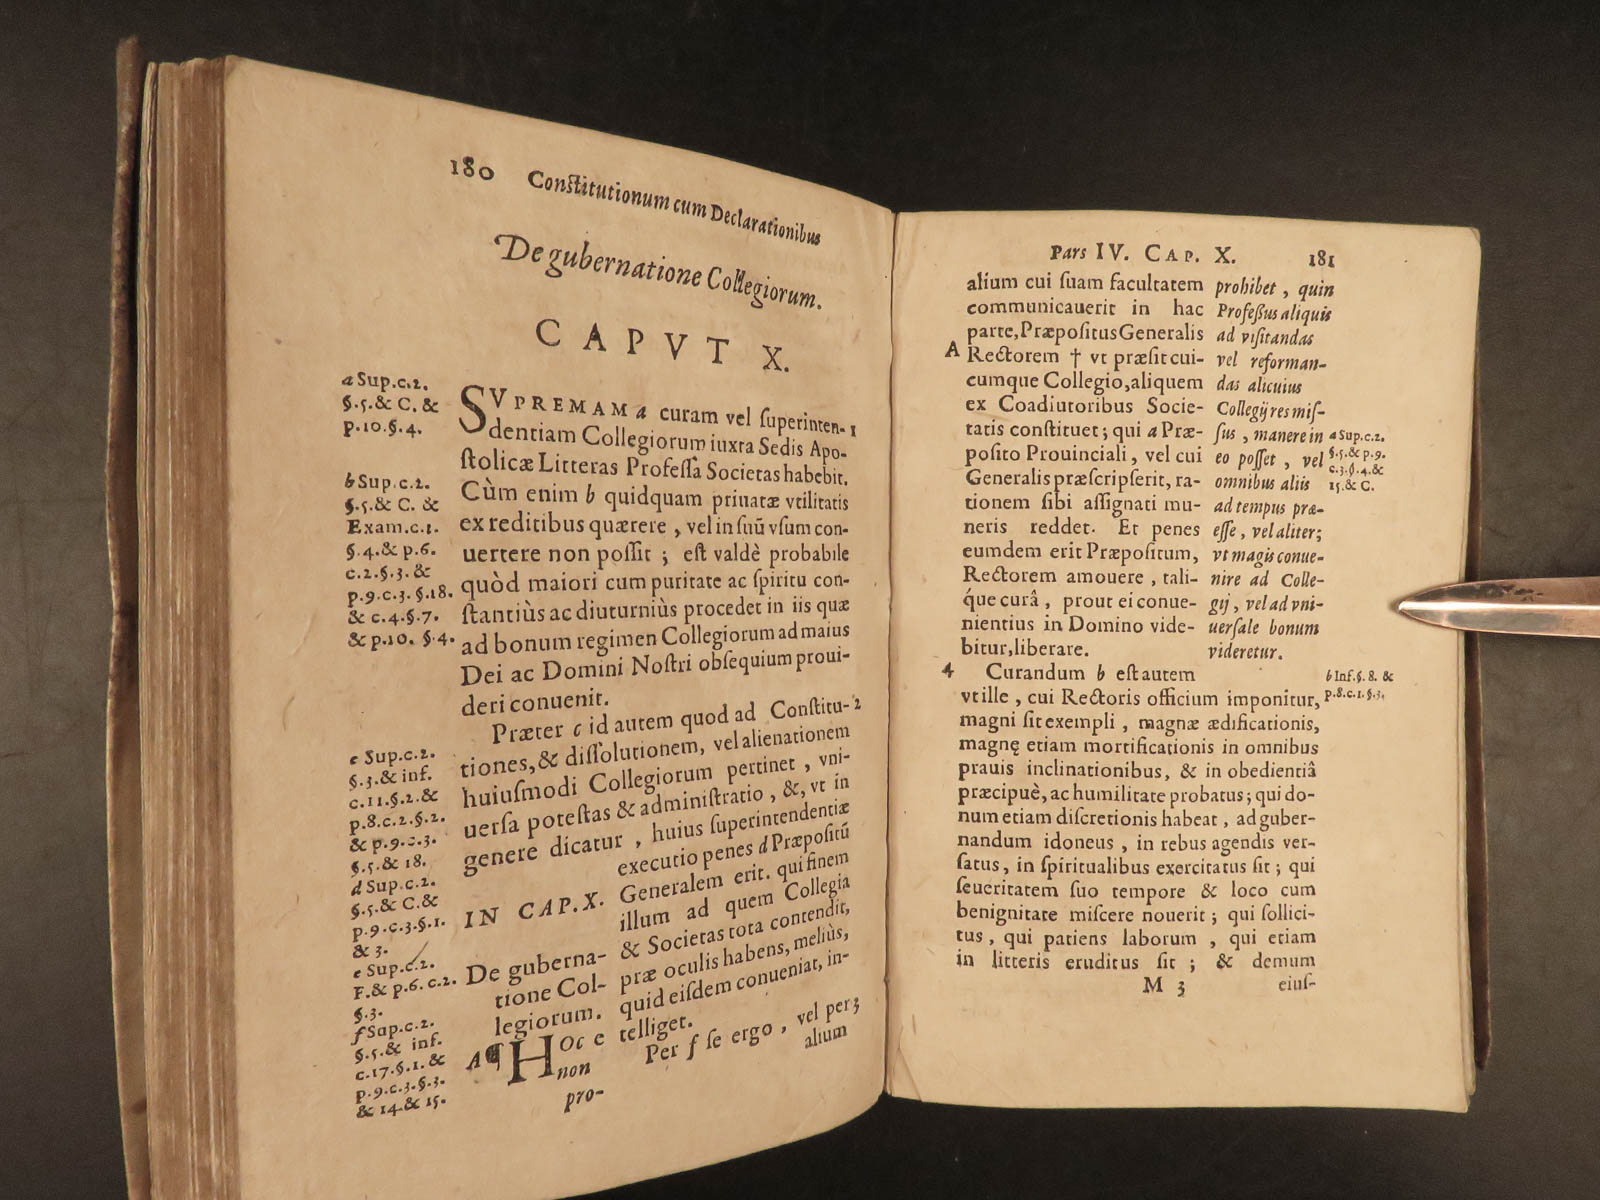 180 Constitutionum cum Declarationibus
De gubernatione Collegiorum.
CAPVT X.
a Sup.c.2.
§.5.& C. &
p.10.§.4.
b Sup.c.2.
§.5.& C. &
Exam.c.1.
§.4.& p.6.
c.2.§.3. &
p.9.c.3. §.18.
& c.4.§.7.
& p.10. §.4.
c Sup.c.2.
§.3.& inf.
c.11.§.2.&
p.8.c.2.§.2.
& p.9.c.3.
§.5.& 18.
d Sup.c.2.
§.5.& C.&
p.9.c.3.§.1.
& 3.
e Sup.c.2.
F.& p.6. c.2.
§.3.
f Sup.c.2.
§.5.& inf.
c.17.§.1. &
p.9.c.3.§.3.
& 14.& 15.
SVPREMAM a curam vel ſuperinten- 1
dentiam Collegiorum iuxta Sedis Apo-
ſtolicæ Litteras Profeſſa Societas habebit.
Cùm enim b quidquam priuatæ vtilitatis
ex reditibus quærere , vel in ſuũ vſum con-
uertere non poſſit ; eſt valdè probabile
quòd maiori cum puritate ac ſpiritu con-
ſtantiùs ac diuturniùs procedet in iis quæ
ad bonum regimen Collegiorum ad maius
Dei ac Domini Noſtri obſequium proui-
deri conuenit.
Præter c id autem quod ad Conſtitu- 2
tiones,& diſſolutionem, vel alienationem
huiuſmodi Collegiorum pertinet , vni-
uerſa poteſtas & adminiſtratio , &, vt in
genere dicatur , huius ſuperintendentiæ
executio penes d Præpoſitũ
Generalem erit. qui finem
illum ad quem Collegia
& Societas tota contendit,
præ oculis habens, meliùs,
quid eiſdem conueniat, in-
telliget.
Per f ſe ergo , vel per 3
alium
IN CAP.X.
De guberna-
tione Col-
legiorum.
A¶ HOc e
non
pro-
Pars IV. CAP. X. 181
alium cui ſuam facultatem
communicauerit in hac
parte,Præpoſitus Generalis
A Rectorem † vt præſit cui-
cumque Collegio,aliquem
ex Coadiutoribus Socie-
tatis conſtituet ; qui a Præ-
poſito Prouinciali , vel cui
Generalis præſcripſerit, ra-
tionem ſibi aſſignati mu-
neris reddet. Et penes
eumdem erit Præpoſitum,
Rectorem amouere , tali-
que curâ , prout ei conue-
nientius in Domino vide-
bitur,liberare.
prohibet , quin
Profeßus aliquis
ad viſitandas
vel reforman-
das alicuius
Collegij res miſ-
ſus , manere in
eo poſſet , vel
omnibus aliis
ad tempus præ-
eſſe , vel aliter;
vt magis conue-
nire ad Colle-
gij , vel ad vni-
uerſale bonum
videretur.
a Sup.c.2.
§.5.& p.9.
c.3.§.4.&
15.& C.
4 Curandum b eſt autem
vt ille , cui Rectoris officium imponitur,
magni ſit exempli , magnæ ædificationis,
magnę etiam mortificationis in omnibus
prauis inclinationibus, & in obedientiâ
præcipuè, ac humilitate probatus ; qui do-
num etiam diſcretionis habeat , ad guber-
nandum idoneus , in rebus agendis ver-
ſatus, in ſpiritualibus exercitatus ſit ; qui
ſeueritatem ſuo tempore & loco cum
benignitate miſcere nouerit ; qui ſollici-
tus , qui patiens laborum , qui etiam
in litteris eruditus ſit ; & demum
M 3 eiuſ-
b Inf.§. 8. &
p.8.c.1.§.3.